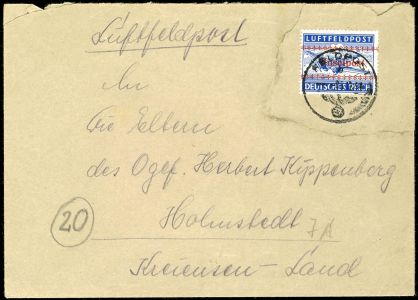 Luftfeldpost
LUFTFELDPOST
Inselpost
DEUTSCHES REICH
FELDPOST
An
Die Eltern
des Ogef. Herbert Kippenberg
20
Holmstedt 7A
Kreiensen-Land